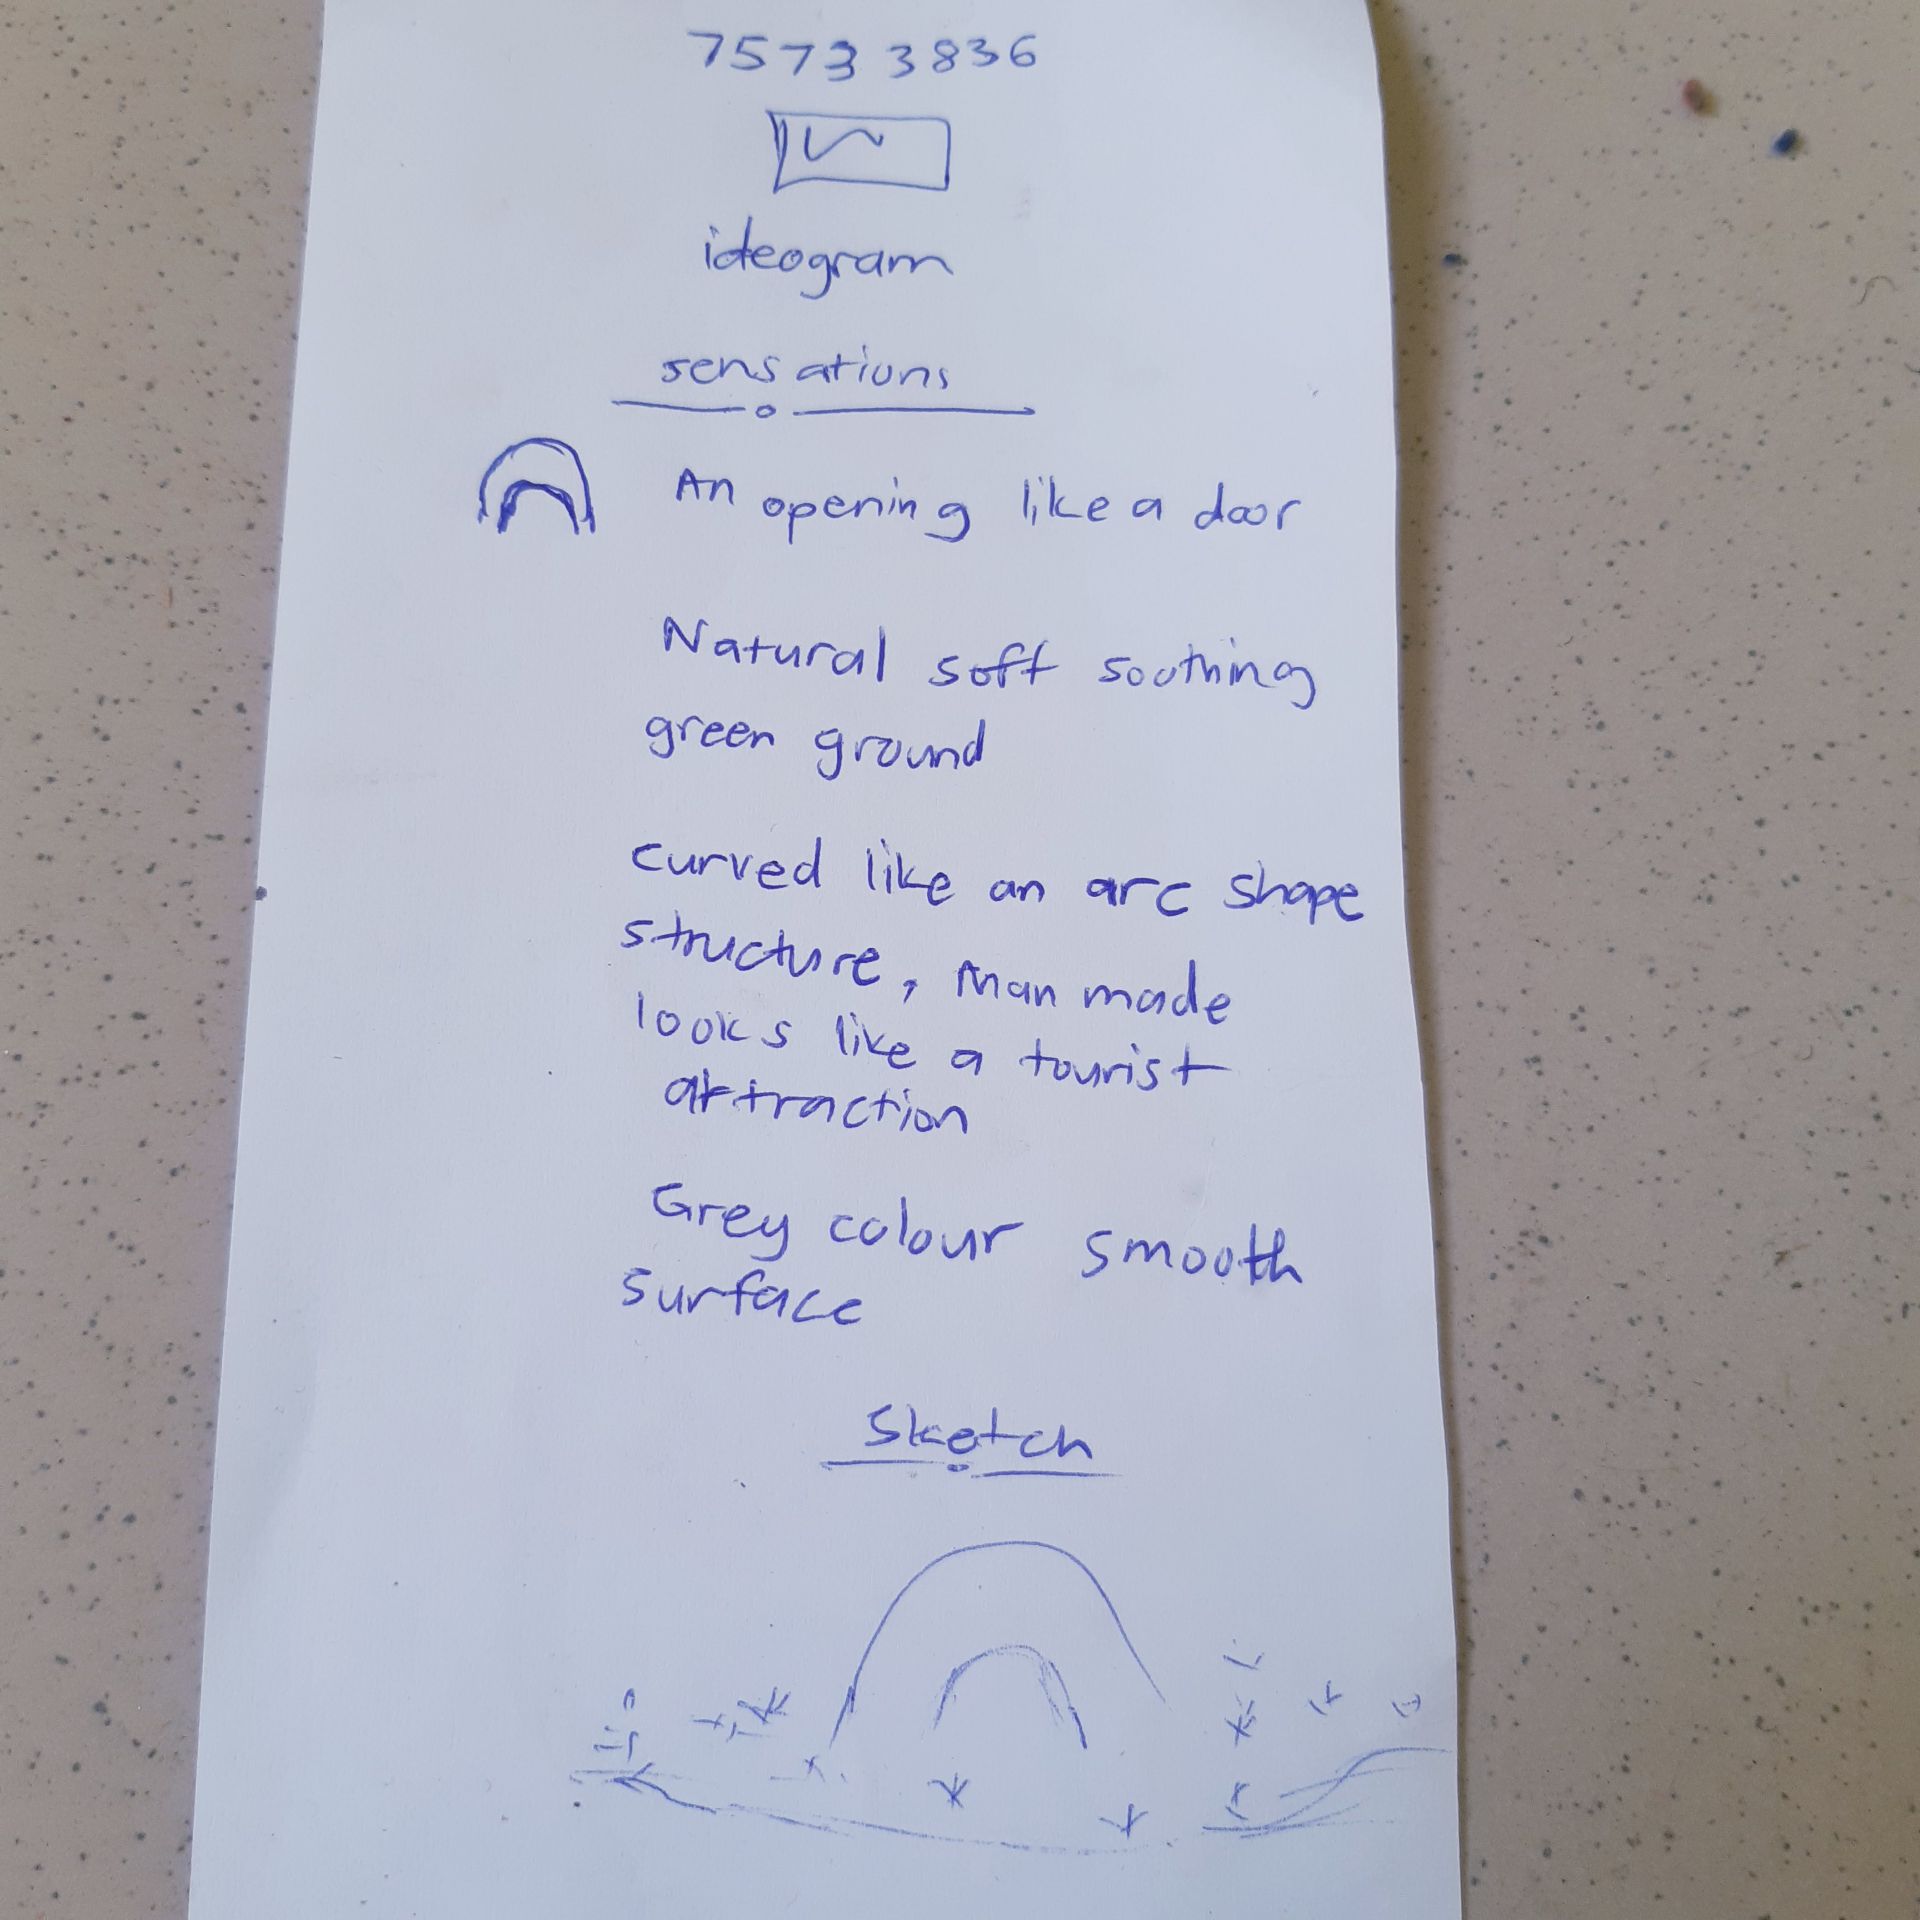 75733836
ideogram
sensations
An opening like a door
Natural soft soothing
green ground
curved like an arc shape
structure, Man made
looks like a tourist
attraction
Grey colour smooth
surface
Sketch